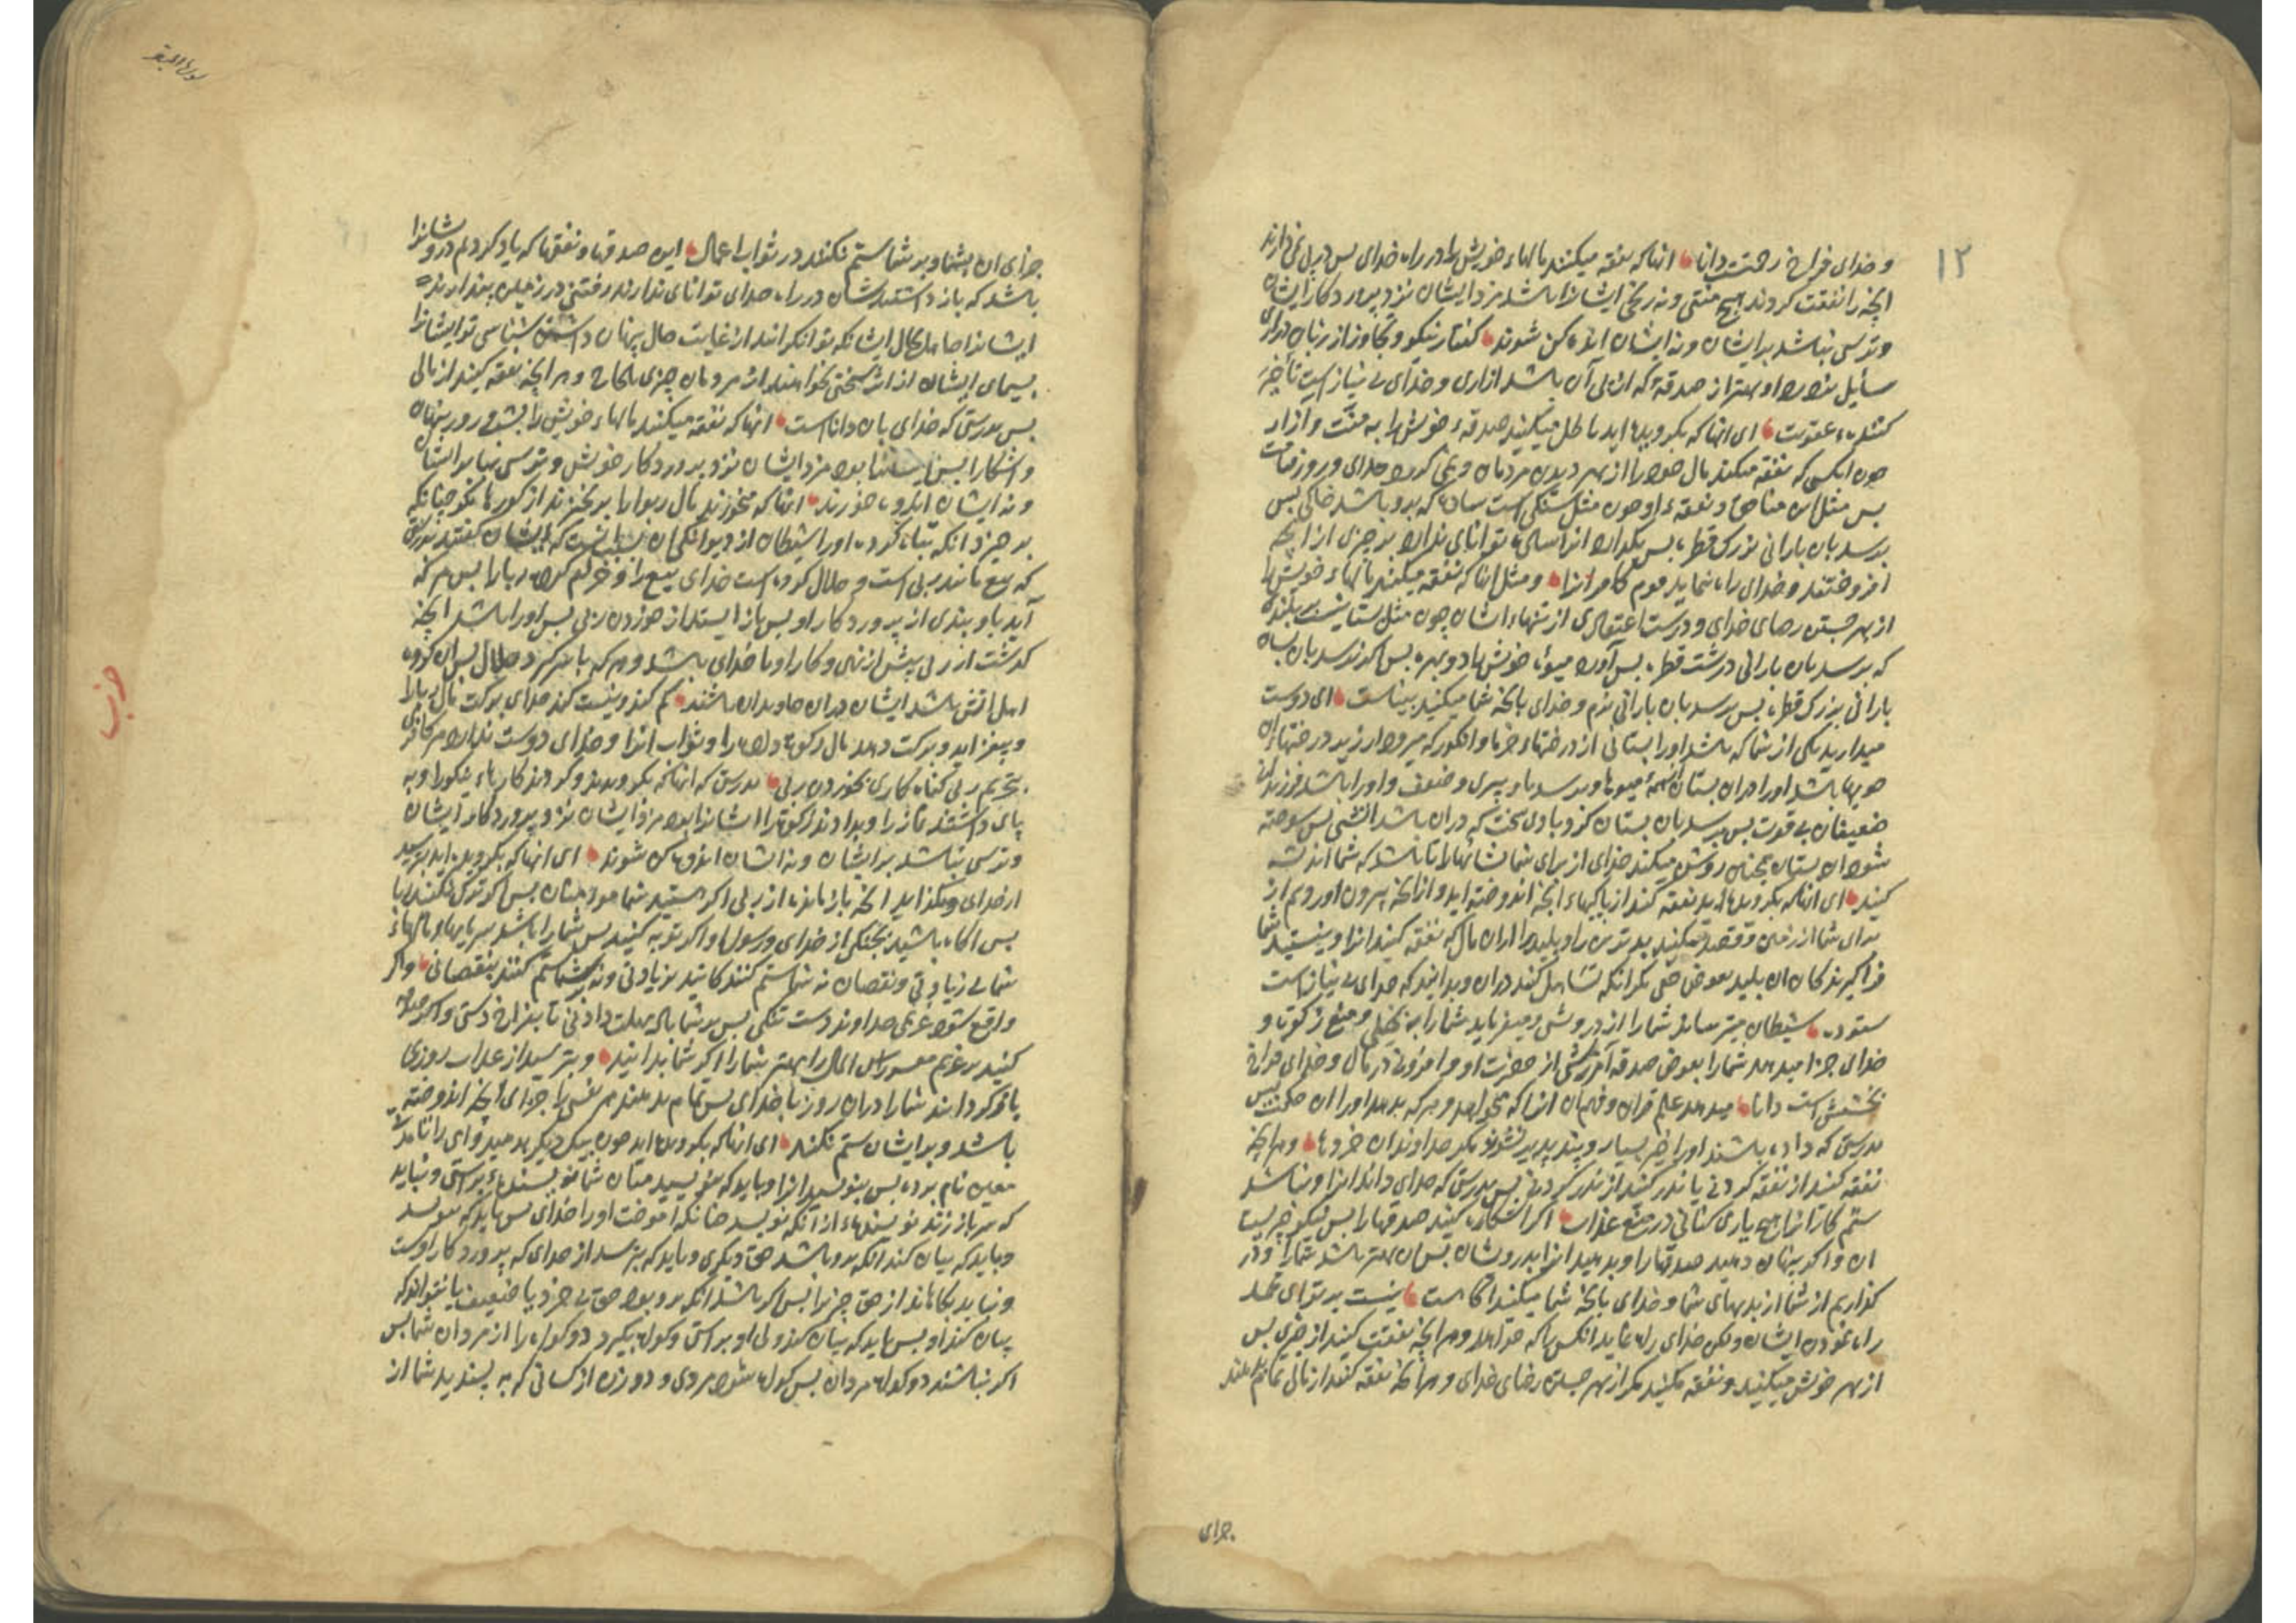 ۱۲
و خدای فراخ رحمتست دانا انها که نفقه میکنند مالهاء خویش را در راه خدای پس در پی نمی دارند
آنچه را نفقت کردند هیچ منتی و نه رنجی ایشانرا باشد مزد ایشان نزد پروردکار ایشان
و ترس نباشد بر ایشان و نه ایشان اندوهکن شوند کفتار نیکو و تجاوز از زبان
سایل بهتر از صدقهٔ که از پی آن باشد ازاری و خدای بی نیاز است
کننده عقوبت ای انها که بکرویده اید باطل میکنید صدقهء خویش را به منت و ازار
چون انکسی که نفقه میکند مال خود را از بهر دیدن مردمان و نمی کرود بخدای و روز قیامت
پس مثل این منافق و نفقهء او چون مثل سنکی است ساده که برو باشد خاکی پس
برسد بان بارانی بزرک قطره پس بکذارد انرا ساده توانای ندارند بر چیزی از انچه
اندوختند و خدای راه ننماید قوم کافرانرا و مثل انها که نفقه میکنند مالهاء خویش را
از بهر جستن رضای خدای و درست اعتقادی از تنهاء ایشان چون مثل بستانیست بر بلندی
که برسد بان بارانی درشت قطره پس آورد میوهٔ خویش را دو بهره پس اکر نرسد بان
بارانی بزرک قطره پس برسد بان بارانی نرم و خدای بانچه شما میکنید بیناست ای دوست
میدارید یکی از شما که باشد اورا بستانی از درختهاء خرما و انکور که میرود از زیر درختهاء ان
جویها باشد اورا دران بستان از همهٔ میوها و برسد باو پیری و ضعف و اورا باشد فرزندان
ضعیفان بی قوت پس برسد بان بستان کردبادی سخت که دران باشد آتشی پس سوخته
شود ان بستان همچنین روشن میکند خدای از برای شما نشانها را تا باشد که شما اندیشه
کنید ای انها که بکرویده اید نفقه کنید از پاکیهاء انچه اندوخته اید و از انچه بیرون اوردیم از
برای شما از زمین و قصد مکنید بدترین را و پلید را ازان مال که نفقه کنید انرا و نیستید شما
فراکیرندکان ان پلید بعوض حق مکر انکه تساهل کنید دران و بدانید که خدای بی نیاز است
ستوده شیطان میترساند شمارا از درویشی و میفرماید شمارا به بخیلی و منع زکوة و
خدای جزا میدهد شمارا بعوض صدقه آمرزشی از حضرت او و افزونی در مال و خدای فراخ
بخششست دانا میدهد علم قران و فهم ان انرا که خواهد و هر که بدهد اورا ان حکمت پس
بدرستی که داده باشند اورا خیر بسیار و پندپذیر نشوند مکر خداوندان خردها و هرانچه
نفقه کنید از نفقه کردنی یا نذر کنید از نذر کردنی پس بدرستی که خدای داند انرا و نباشد
ستم کارانرا هیچ یاری کنانی در منع عذاب اکر اشکاره کنید صدقها را پس نیکو چیزیست
ان و اکر پنهان دهید صدقها را و بدهید انرا بدرویشان پس ان بهتر باشد شمارا و در
کذاریم از شما از بدیهای شما و خدای بانچه شما میکنید اکاهست نیست بر تو ای محمد
راه نمودن ایشان و لکن خدای راه نماید انکس را که خواهد و هر انچه نفقت کنید از چیزی پس
از بهر خویش میکنید و نفقه مکنید مکر از بهر جستن رضای خدای و هرانچه نفقه کنید از مالی تمام دهند
جزای
سورة البقر
جزای ان بشما و بر شما ستم نکنند در ثواب اعمال این صدقها و نفقها که یاد کردیم درویشانرا
باشد که باز داشتندشان در راه خدای توانای ندارند رفتنی در زمین پندارند
ایشانرا جاهل بحال ایشانکه توانکرانند از غایت حال پنهان داشتن شناسی تو ایشانرا
بسیمای ایشان از اثر سختی نخواهند از مردمان چیزی بالحاح و هرانچه نفقه کنید از مالی
پس بدرستی که خدای بان داناست انها که نفقه میکنند مالهاء خویش را بشب و روز پنهان
و اشکارا پس ایشانرا بود مزد ایشان نزد پروردکار خویش و ترسی نباشد بر ایشان
و نه ایشان اندوه خورند انها که میخورند مال ربوا را برنخیزند از کورها مکر چنانکه
برخیزد انکه تباه کرده اورا شیطان از دیوانکی ان بسبب انست که ایشان کفتند بدرستی
که بیع مانند ربی است و حلال کرده است خدای بیع را و حرام کرده ربا را پس هر که
آید باو پندی از پروردکار او پس باز ایستد از خوردن ربی پس اورا باشد انچه
کذشت از ربی پیش از نهی و کار او با خدای باشد و هر که باز کردد بحلال پس ان کروه
اهل اتش باشد ایشان دران جاویدان باشند کم کند و نیست کند خدای برکت مال ربا را
و بیفزاید و برکت دهد مال زکوة داده را و ثواب انرا و خدای دوست ندارد هر کافر
بتحریم ربی کناه کاری بخوردن ربی بدرستی که انها که بکرویدند و کردند کارهاء نیکو را و به
پای داشتند نماز را و بدادند زکوة را ایشانرا بود مزد ایشان نزد پروردکار ایشان
و ترسی نباشد بر ایشان و نه ایشان اندوهکن شوند ای انها که بکرویده اید بترسید
از خدای و بکذارید انچه باز مانده از ربی اکر هستید شما مومنان پس اکر ترک نکنید ربا
پس اکاه باشید بجنکی از خدای و رسول او و اکر توبه کنید پس شمارا باشد سرمایهاء مالهاء
شما بی زیادتی و نقصان نه شما ستم کنندکانید بزیادتی و نه بر شما ستم کنند بنقصانی و اکر
واقع شود غریمی خداوند دست تنکی پس بر شما باد مهلت دادنی تا بفراخ دستی و اکر صدقه
کنید بر غریم معسر راس المال را بهتر شمارا اکر شما بدانید و بترسید از عذاب روزی
باز کردانند شمارا دران روز با خدای پس تمام بدهند هر نفسی را جزای انچه اندوخته
باشد و بر ایشان ستم نکنند ای انها که بکرویده اید چون بیکدیکر بدهید وامی را تا مدتی
معین نام برده پس بنویسید انرا و باید که بنویسد میان شما نویسندهٔ براستی و نباید
که سر باز زند نویسندهٔ از انکه نویسد چنانکه اموخت اورا خدای پس باید که بنویسد
و باید که بیان کند انکه برو باشد حق دیکری و باید که بترسد از خدای که پروردکار اوست
و نباید بکاهاند از حق چیزی را پس اکر باشد انکه برو بود حق بی خرد یا ضعیف یا نتواند که
بیان کند او پس باید که بیان کند ولی او براستی و کواه بیکرید دو کواه را از مردان شما پس
اکر نباشند دو کواه مردان پس کواه شود مردی و دو زن از کسانی که به پسندید شما از
حزب